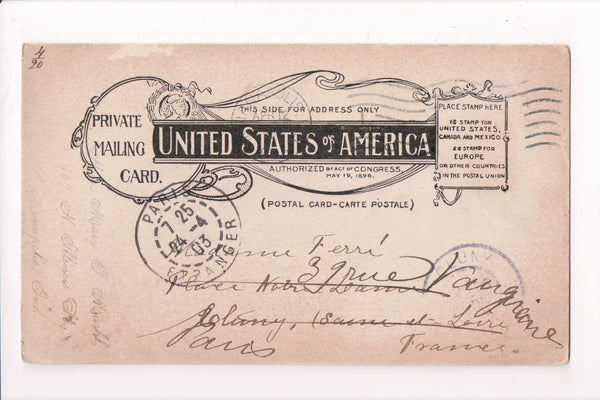 4/20
PRIVATE
MAILING
CARD.
THIS SIDE FOR ADDRESS ONLY
UNITED STATES OF AMERICA
AUTHORIZED BY ACT OF CONGRESS,
MAY 19, 1898.
(POSTAL CARD-CARTE POSTALE)
PLACE STAMP HERE
1¢ STAMP FOR
UNITED STATES,
CANADA AND MEXICO.
2¢ STAMP FOR
EUROPE
OR OTHER COUNTRIES
IN THE POSTAL UNION
PARIS
7 25
24 -4
03
ETRANGER
CLUNY
Ferré
39 rue Vaugirard
Place Notre Dame
Cluny, (Saone et Loire)
Paris France
Mary
Ind